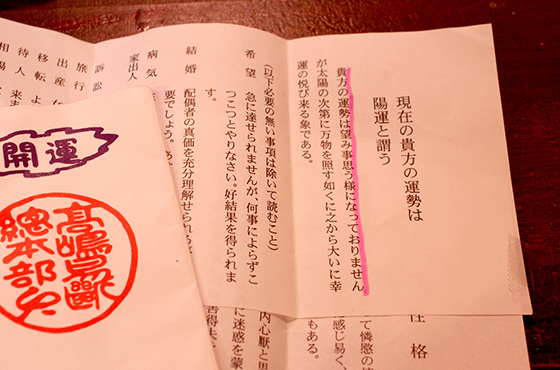 現在の貴方の運勢は
陽運と謂う
貴方の運勢は望み事思う様になっておりません
が太陽の次第に万物を照す如くに之から大いに幸
運の悦び来る象である。
(以下必要の無い事項は除いて読むこと)
希望 急に達せられませんが、何事によらずこ
つこつとやりなさい。好結果を得られま
す。
結婚 配偶者の真価を充分理解せられる
要でしょう。あ
病気
家出人
訴訟
旅行
出産
移転
待人
相場
開運
高嶋易斷
總本部
性格
て憐慾の
に感じ易く、
もある。
内心厭と思
に迷惑を蒙